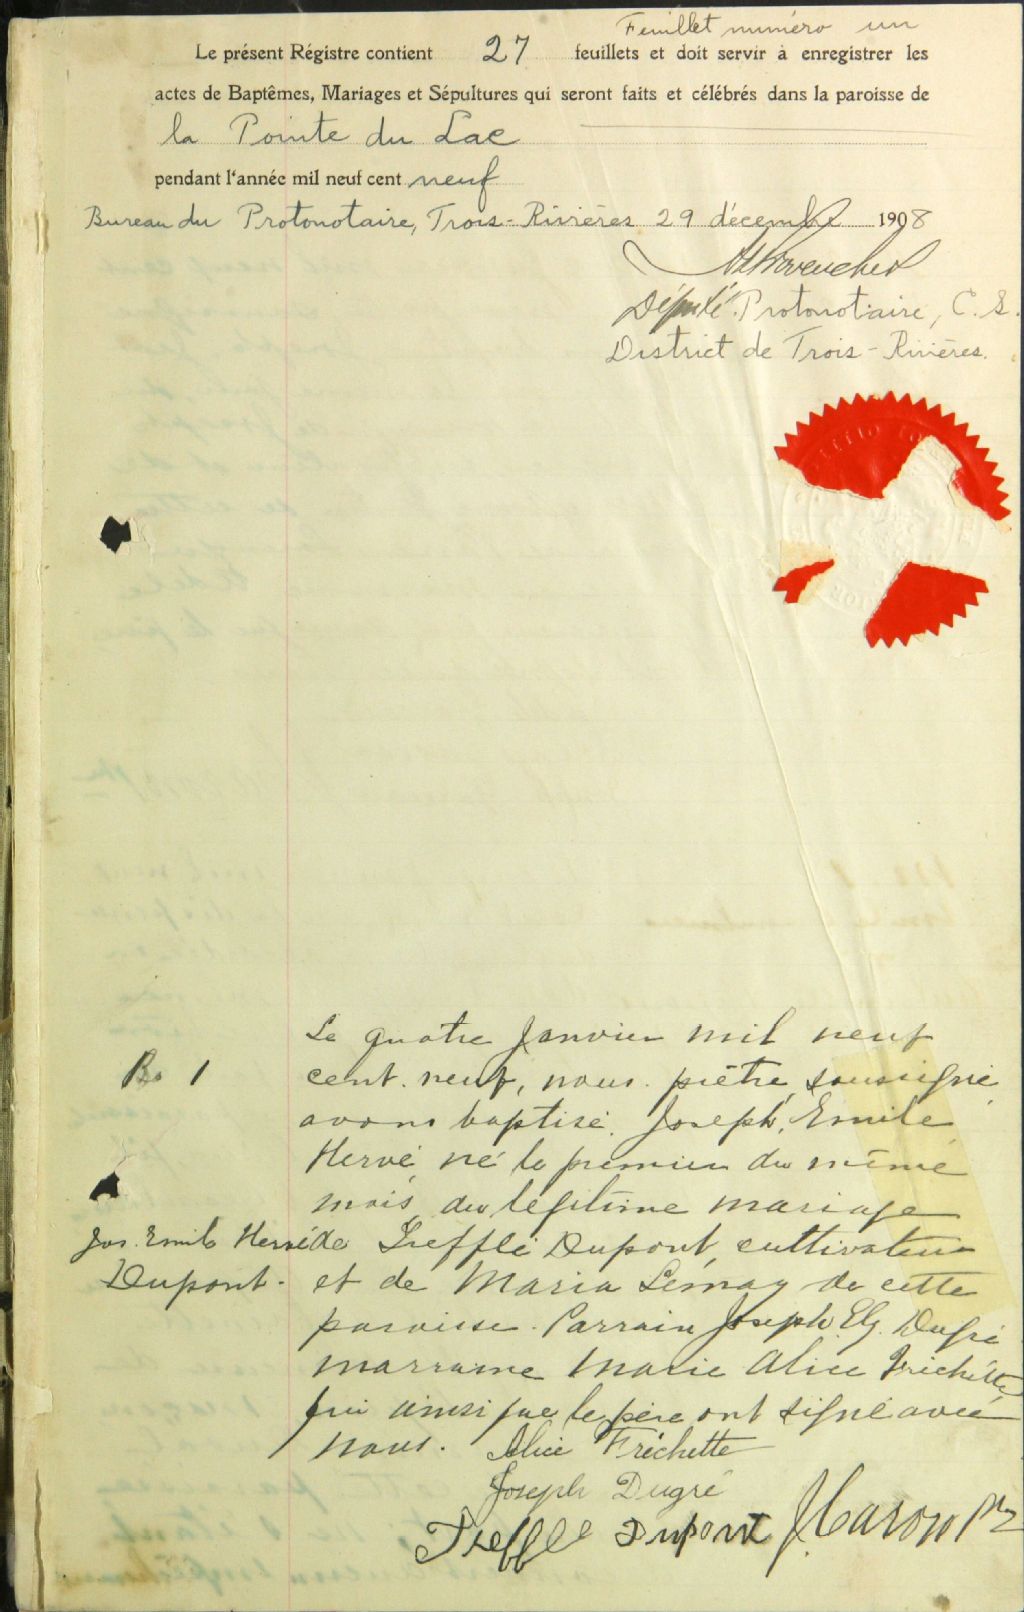 Feuillet numéro un
Le présent Régistre contient 27 feuillets et doit servir à enregistrer les
actes de Baptêmes, Mariages et Sépultures qui seront faits et célébrés dans la paroisse de
la Pointe du Lac
pendant l'année mil neuf cent neuf
Bureau du Protonotaire, Trois-Rivières 29 décembre 1908
Député Protonotaire, C. S.
District de Trois-Rivières.
Le quatre Janvier mil neuf
B. 1 cent neuf, nous prêtre soussigné
avons baptisé Joseph, Emile
Hervé né le premier du même
mois du légitime mariage
Jos. Emile Hervé de Treffle Dupont cultivateur
Dupont. et de Maria Lemay de cette
paroisse. Parrain Joseph Dugré
marraine Marie Alice Frechette
qui ainsi que le père ont signé avec
nous. Alice Fréchette
Joseph Dugré
Treffle Dupont J. Caron Ptre